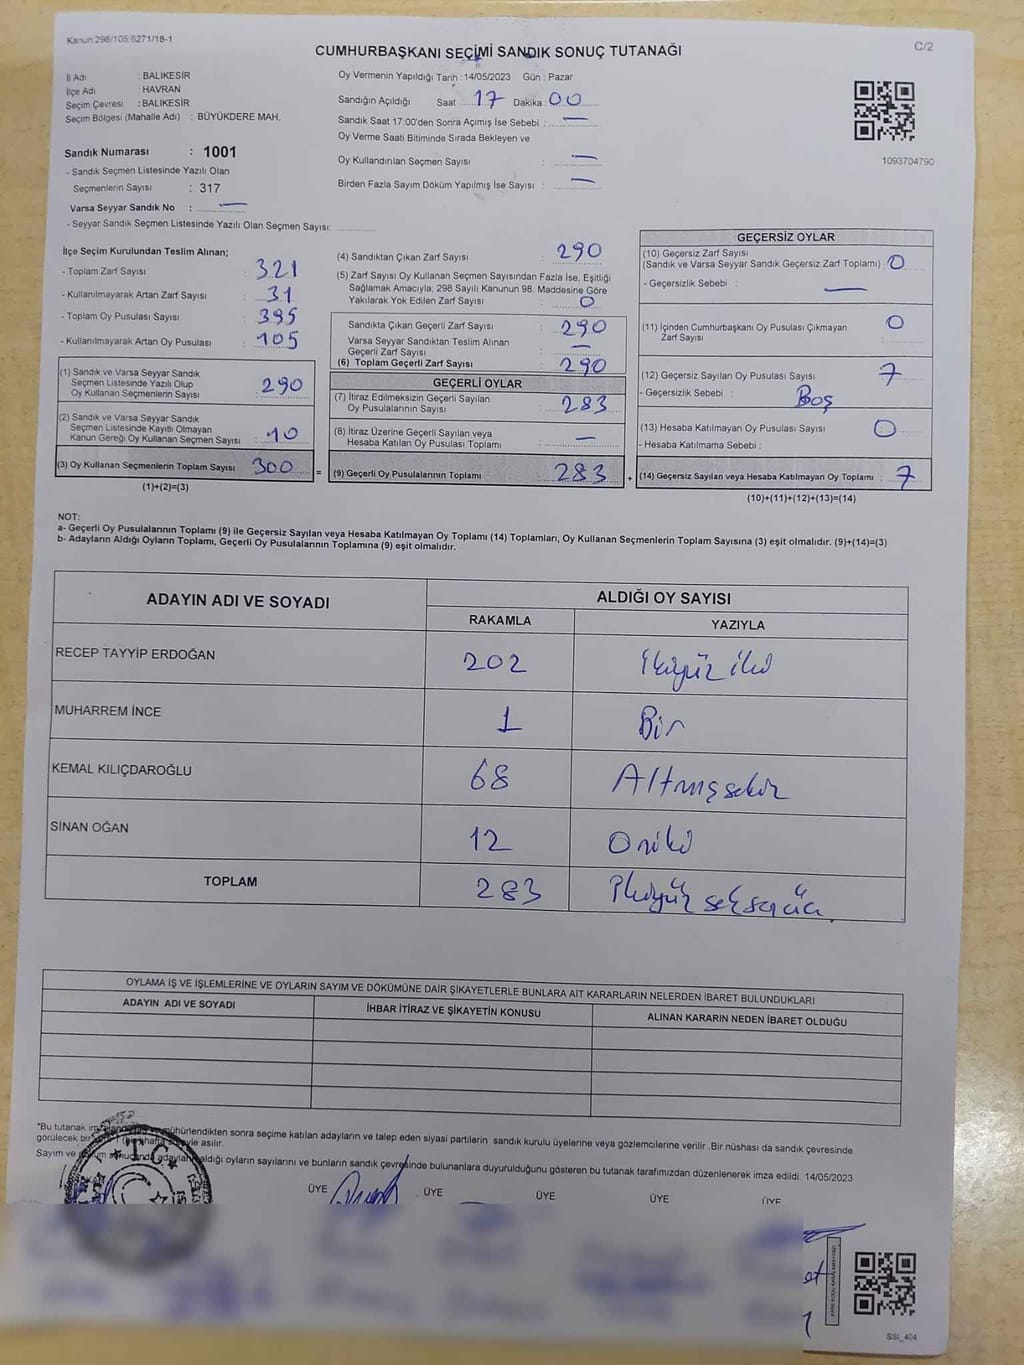 Kanun:298/105:6271/18-1
C/2
CUMHURBAŞKANI SEÇİMİ SANDIK SONUÇ TUTANAĞI
İl Adı : BALIKESİR
İlçe Adı : HAVRAN
Seçim Çevresi : BALIKESİR
Seçim Bölgesi (Mahalle Adı) : BÜYÜKDERE MAH.
Sandık Numarası : 1001
- Sandık Seçmen Listesinde Yazılı Olan
Seçmenlerin Sayısı : 317
Varsa Seyyar Sandık No : —
- Seyyar Sandık Seçmen Listesinde Yazılı Olan Seçmen Sayısı:
Oy Vermenin Yapıldığı Tarih : 14/05/2023 Gün : Pazar
Sandığın Açıldığı Saat : 17 Dakika : 00
Sandık Saat 17:00'den Sonra Açımış İse Sebebi : —
Oy Verme Saati Bitiminde Sırada Bekleyen ve
Oy Kullandırılan Seçmen Sayısı : —
Birden Fazla Sayım Döküm Yapılmış İse Sayısı : —
1093704790
İlçe Seçim Kurulundan Teslim Alınan;
- Toplam Zarf Sayısı : 321
- Kullanılmayarak Artan Zarf Sayısı : 31
- Toplam Oy Pusulası Sayısı : 395
- Kullanılmayarak Artan Oy Pusulası : 105
(1) Sandık ve Varsa Seyyar Sandık
Seçmen Listesinde Yazılı Olup
Oy Kullanan Seçmenlerin Sayısı : 290
(2) Sandık ve Varsa Seyyar Sandık
Seçmen Listesinde Kayıtlı Olmayan
Kanun Gereği Oy Kullanan Seçmen Sayısı : 10
(3) Oy Kullanan Seçmenlerin Toplam Sayısı 300
(1)+(2)=(3)
=
(4) Sandıktan Çıkan Zarf Sayısı : 290
(5) Zarf Sayısı Oy Kullanan Seçmen Sayısından Fazla İse, Eşitliği
Sağlamak Amacıyla, 298 Sayılı Kanunun 98. Maddesine Göre
Yakılarak Yok Edilen Zarf Sayısı : 0
Sandıkta Çıkan Geçerli Zarf Sayısı : 290
Varsa Seyyar Sandıktan Teslim Alınan
Geçerli Zarf Sayısı : —
(6) Toplam Geçerli Zarf Sayısı : 290
GEÇERLİ OYLAR
(7) İtiraz Edilmeksizin Geçerli Sayılan
Oy Pusulalarının Sayısı : 283
(8) İtiraz Üzerine Geçerli Sayılan veya
Hesaba Katılan Oy Pusulası Toplamı : —
(9) Geçerli Oy Pusulalarının Toplamı : 283
+
GEÇERSİZ OYLAR
(10) Geçersiz Zarf Sayısı
(Sandık ve Varsa Seyyar Sandık Geçersiz Zarf Toplamı) : 0
- Geçersizlik Sebebi : —
(11) İçinden Cumhurbaşkanı Oy Pusulası Çıkmayan
Zarf Sayısı : 0
(12) Geçersiz Sayılan Oy Pusulası Sayısı : 7
- Geçersizlik Sebebi : Boş
(13) Hesaba Katılmayan Oy Pusulası Sayısı : 0
- Hesaba Katılmama Sebebi :
(14) Geçersiz Sayılan veya Hesaba Katılmayan Oy Toplamı : 7
(10)+(11)+(12)+(13)=(14)
NOT:
a- Geçerli Oy Pusulalarının Toplamı (9) ile Geçersiz Sayılan veya Hesaba Katılmayan Oy Toplamı (14) Toplamları, Oy Kullanan Seçmenlerin Toplam Sayısına (3) eşit olmalıdır. (9)+(14)=(3)
b- Adayların Aldığı Oyların Toplamı, Geçerli Oy Pusulalarının Toplamına (9) eşit olmalıdır.
ADAYIN ADI VE SOYADI
ALDIĞI OY SAYISI
RAKAMLA YAZIYLA
RECEP TAYYİP ERDOĞAN 202 İkiyüz iki
MUHARREM İNCE 1 Bir
KEMAL KILIÇDAROĞLU 68 Altmışsekiz
SİNAN OĞAN 12 Oniki
TOPLAM 283 İkiyüz seksenüç
OYLAMA İŞ VE İŞLEMLERİNE VE OYLARIN SAYIM VE DÖKÜMÜNE DAİR ŞİKAYETLERLE BUNLARA AİT KARARLARIN NELERDEN İBARET BULUNDUKLARI
ADAYIN ADI VE SOYADI İHBAR İTİRAZ VE ŞİKAYETİN KONUSU ALINAN KARARIN NEDEN İBARET OLDUĞU
*Bu tutanak mühürlendikten sonra seçime katılan adayların ve talep eden siyasi partilerin sandık kurulu üyelerine veya gözlemcilerine verilir .Bir nüshası da sandık çevresinde
görülecek bir hafta süreyle asılır.
Sayım ve sonucunda adayların aldığı oyların sayılarını ve bunların sandık çevresinde bulunanlara duyurulduğunu gösteren bu tutanak tarafımızdan düzenlenerek imza edildi. 14/05/2023
ÜYE ÜYE ÜYE ÜYE ÜYE
T.C.
SSİ_404